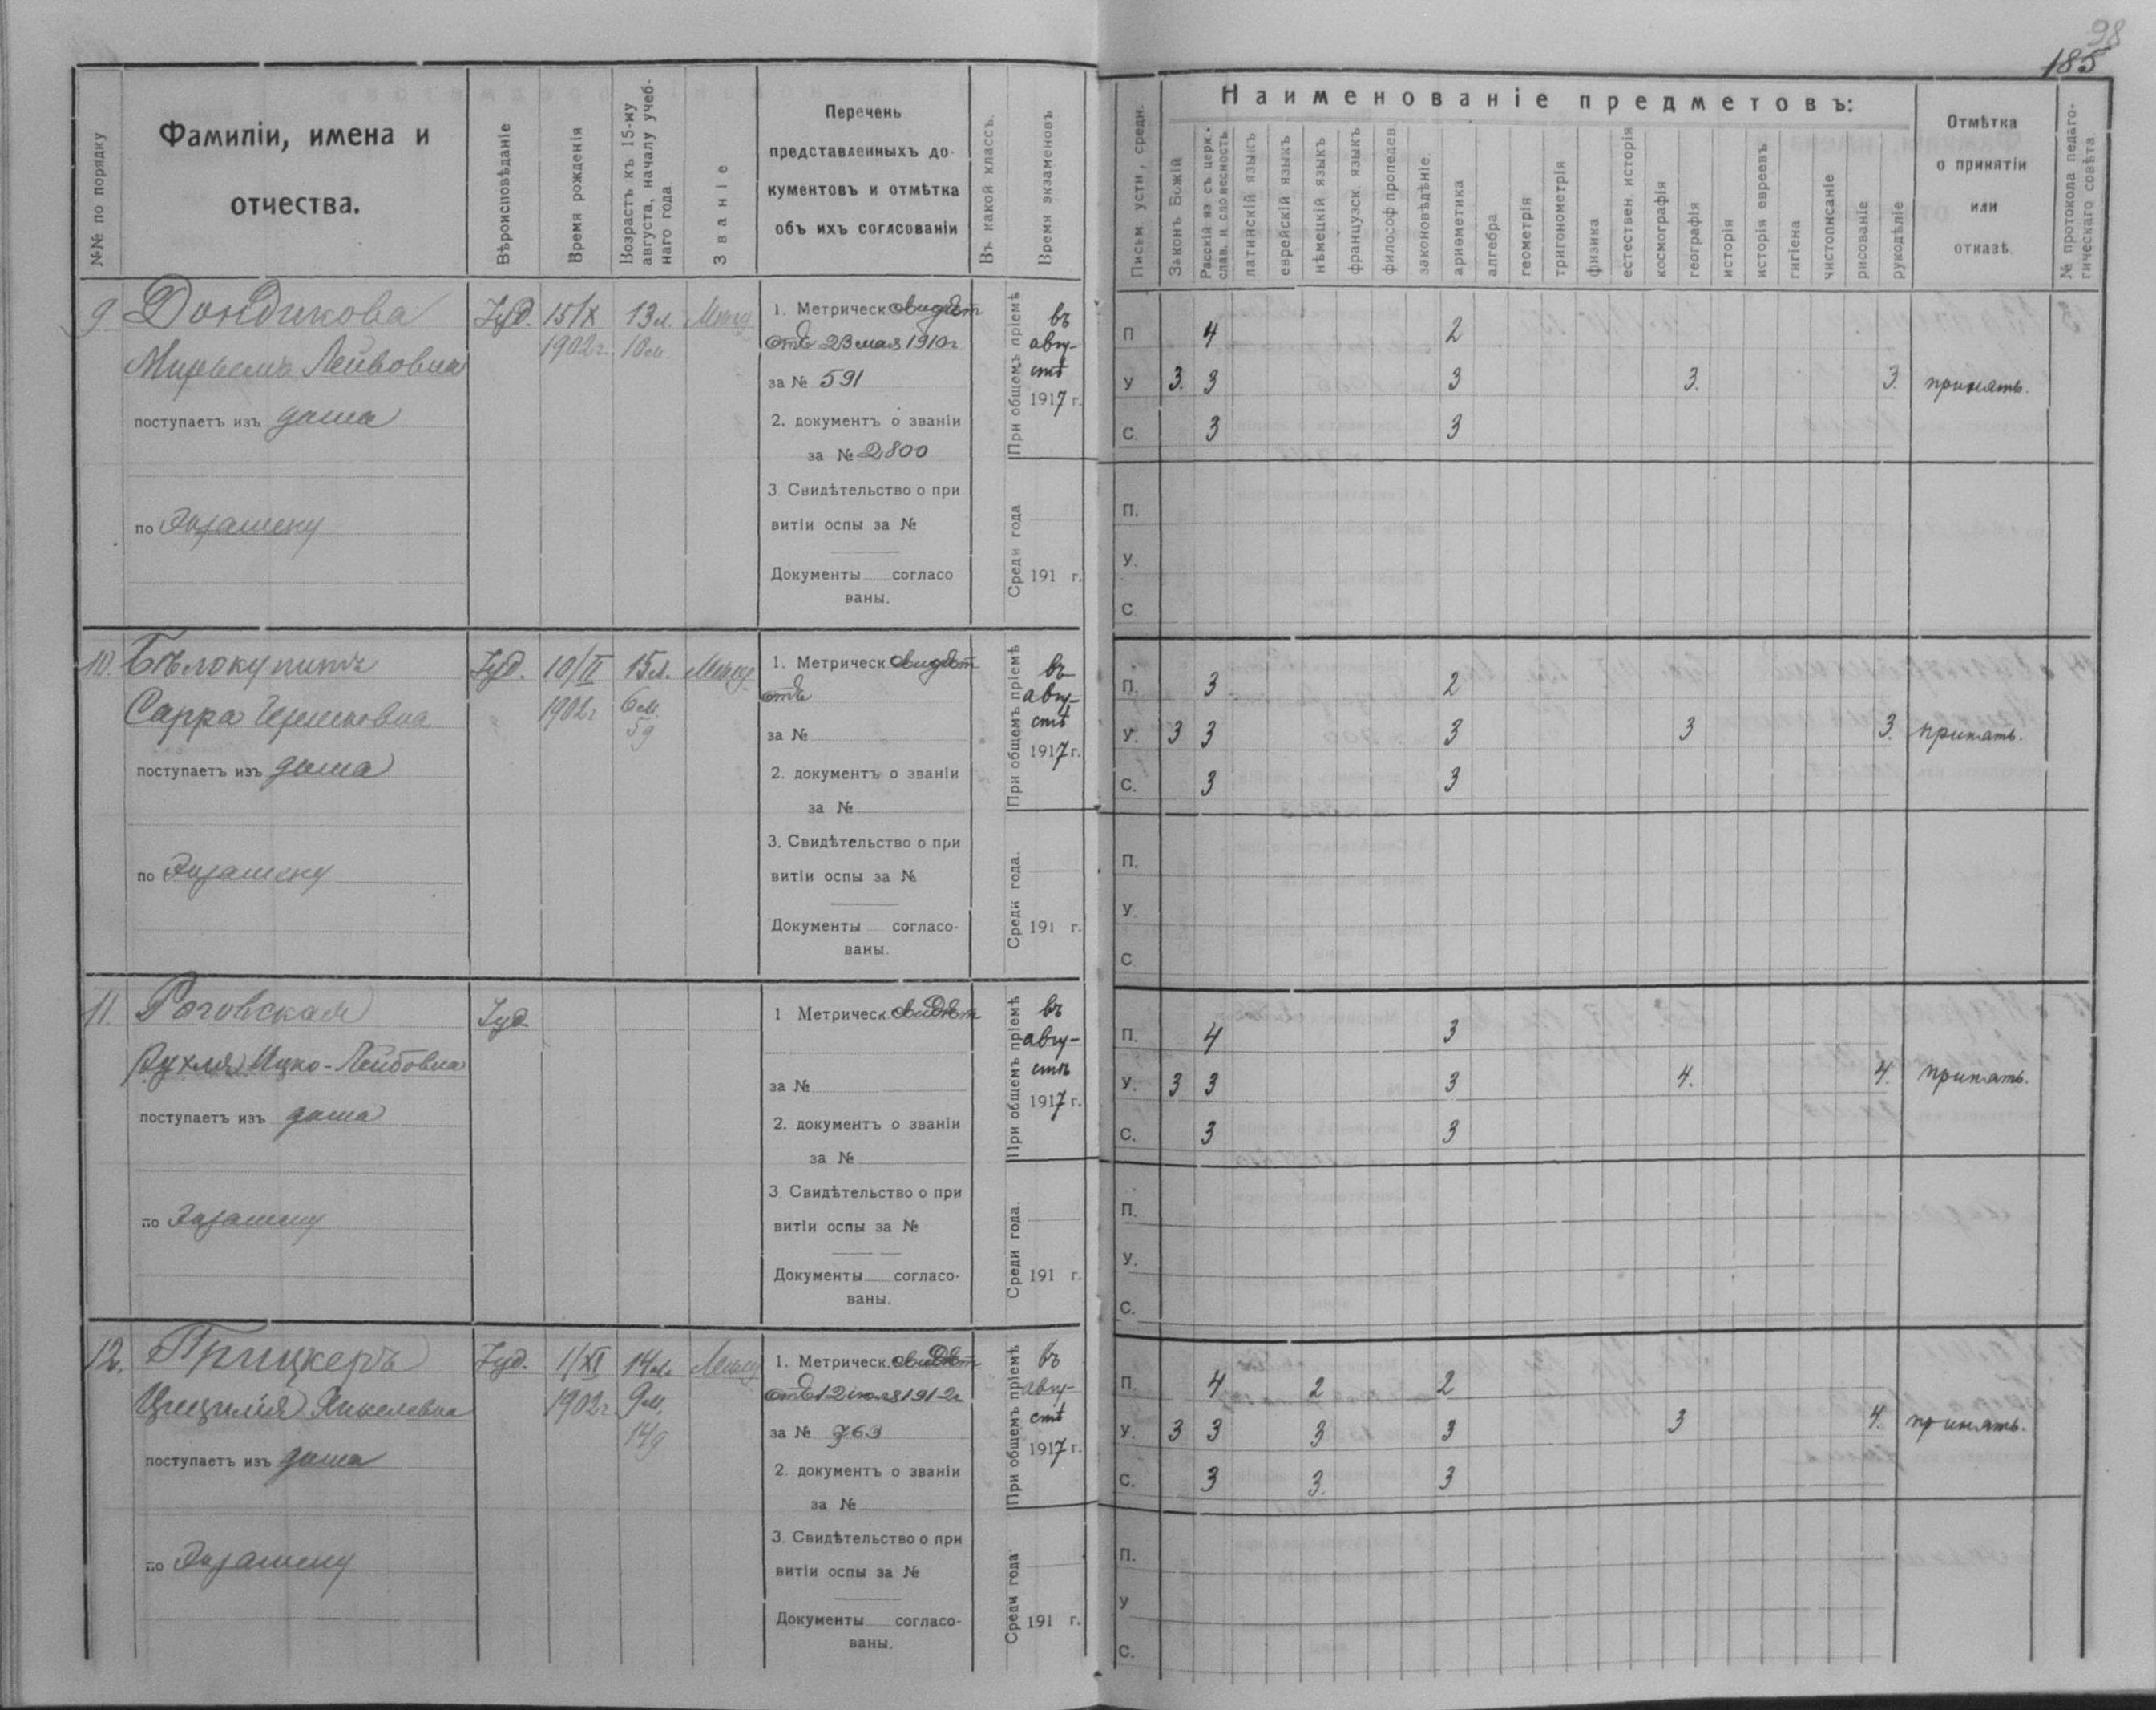 98
185
№№ по порядку
Фамиліи, имена и
отчества.
Вѣроисповѣданіе
Время рожденія
Возрастъ къ 15-му
августа, началу учеб-
наго года.
Званіе
Перечень
представленныхъ до-
кументовъ и отмѣтка
объ ихъ согласованіи
Въ какой классъ.
Время экзаменовъ
Письм устн, средн.
Наименованіе предметовъ:
Законъ Божій
Расскій яз съ церк.-
слав. и словесность
латинскій языкъ
еврейскій языкъ
нѣмецкій языкъ
французск. языкъ
философ пропедев
законовѣдѣніе.
ариѳметика
алгебра
геометрія
тригонометрія
физика
естествен. исторія
космографія
географія
исторія
исторія евреевъ
гигіена
чистописаніе
рисованіе
рукодѣліе
Отмѣтка
о принятіи
или
отказѣ.
№ протокола педаго-
гическаго совѣта
9 Дондикова Іуд. 15/X 13 л. Мѣщ
1902 г. 10 м.
Мирьемъ Лейбовна
поступаетъ изъ дома
по экзамену
1. Метрическ свидѣт
отъ 23 мая 1910 г
за № 591
2. документъ о званіи
за № 2800
3. Свидѣтельство о при
витіи оспы за №
Документы согласо
ваны.
При общемъ пріемѣ
въ
авгу-
стѣ
1917 г.
Среди года
191 г.
П 4 2
У 3. 3 3 3. 3. принять.
С. 3 3
П.
У.
С
10. Бѣлокупитъ Іуд. 10/II 15 л. Мѣщ
1902 г 6 м.
5 д
Сарра
поступаетъ изъ дома
по экзамену
1. Метрическ свидѣт
отъ
за №
2. документъ о званіи
за №
3. Свидѣтельство о при
витіи оспы за №
Документы согласо-
ваны.
При общемъ пріемѣ
въ
авгу-
стѣ
1917 г.
Среди года.
191 г.
П. 3 2
У. 3 3 3 3 3. принять.
С. 3 3
П.
У.
С
11. Роговская Іуд
Рухля Ицко-Лейбовна
поступаетъ изъ дома
по экзамену
1 Метрическ. свидѣт
за №
2. документъ о званіи
за №
3. Свидѣтельство о при
витіи оспы за №
Документы согласо-
ваны.
При общемъ пріемѣ
въ
авгу-
стѣ
1917 г.
Среди года.
191 г.
П. 4 3
У. 3 3 3 4. 4. принять.
С. 3 3
П.
У.
С.
12. Грицкеръ Іуд. 1/XI 14 л. Мѣщ
1902 г. 9 м.
14 д
Цицилія Янкелевна
поступаетъ изъ дома
по экзамену
1. Метрическ. свидѣт
отъ 12 іюля 1912 г
за № 763
2. документъ о званіи
за №
3. Свидѣтельство о при
витіи оспы за №
Документы согласо-
ваны.
При общемъ пріемѣ
въ
авгу-
стѣ
1917 г.
Среди года
191 г.
П. 4 2 2
У. 3 3 3 3 3 4. принять.
С. 3 3. 3
П.
У
С.